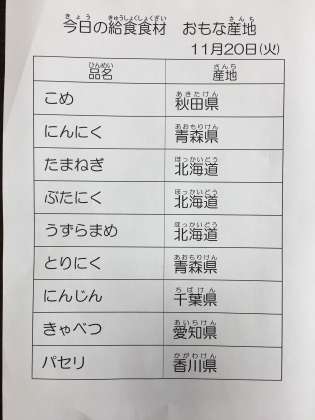 今日の給食食材 おもな産地
11月20日(火)
品名 産地
こめ 秋田県
にんにく 青森県
たまねぎ 北海道
ぶたにく 北海道
うずらまめ 北海道
とりにく 青森県
にんじん 千葉県
きゃべつ 愛知県
パセリ 香川県